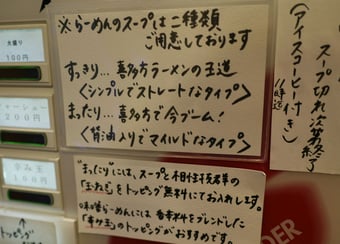 ※らーめんのスープは二種類
ご用意しております
すっきり…喜多方ラーメンの王道
<シンプルでストレートなタイプ>
まったり…喜多方で今ブーム!
<背油入りでマイルドなタイプ>
"まったり"には、スープと相性抜群の
「玉ねぎ」をトッピング無料にてお入れします。
味噌らーめんには香辛料をブレンドした
「辛み玉」のトッピングがおすすめです。
スープ切れ次第終了
(アイスコーヒー付き)
大盛り
100円
チャーシュー
200円
辛み玉
100円